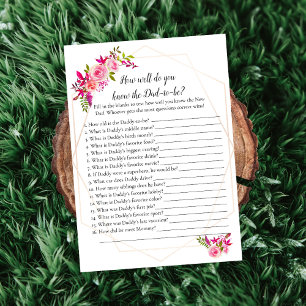 How well do you
know the Dad-to-be?
Fill in the blanks to see how well you know the New
Dad. Whoever gets the most questions correct wins!
1. How old is the Daddy-to-be?
2. What is Daddy's middle name?
3. What is Daddy's birth month?
4. What is Daddy's favorite food?
5. What is Daddy's biggest craving?
6. What is Daddy's favorite drink?
7. What is Daddy's favorite movie?
8. If Daddy were a superhero, he would be?
9. What car does Daddy drive?
10. How many siblings does he have?
11. What is Daddy's favorite hobby?
12. What is Daddy's favorite color?
13. What was Daddy's first job?
14. What is Daddy's favorite sport?
15. Where was Daddy's last vacation?
16. How did he meet Mommy?